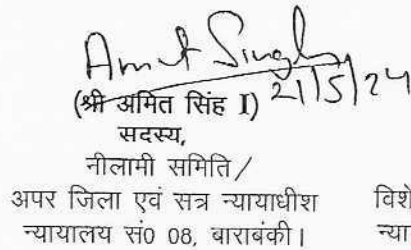 Amit Singh
21/5/24
(श्री अमित सिंह I)
सदस्य,
नीलामी समिति /
अपर जिला एवं सत्र न्यायाधीश विशे
न्यायालय सं0 08, बाराबंकी। न्या